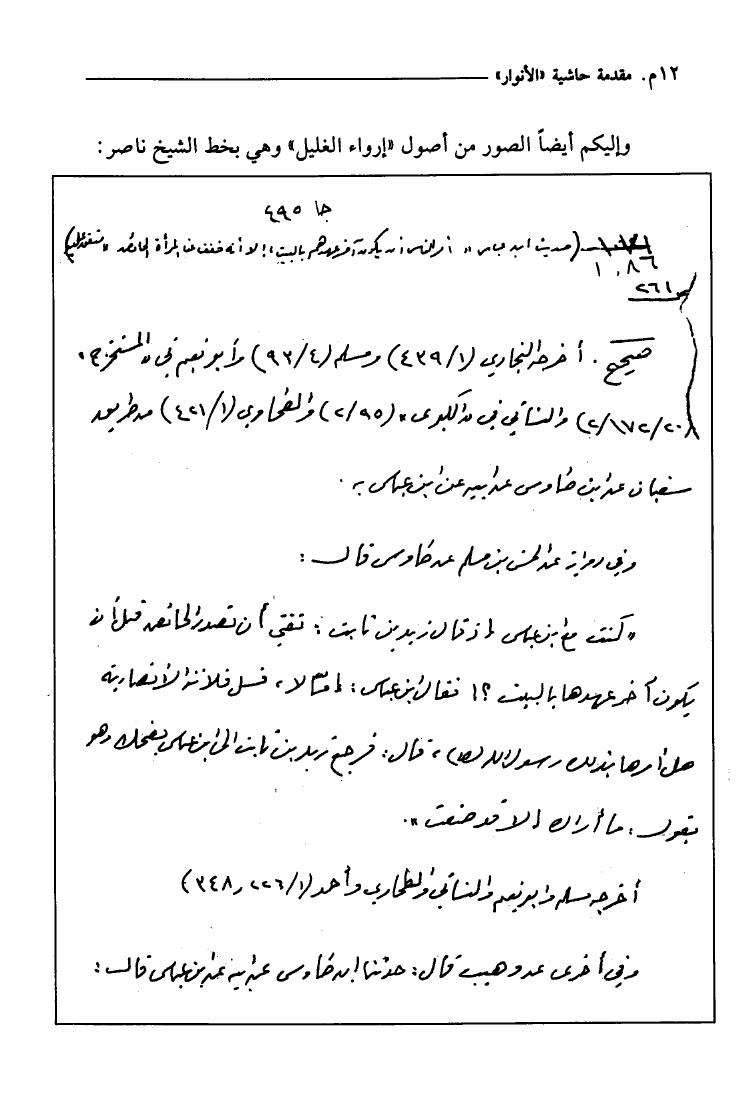 ١٢م. مقدمة حاشية «الأنوار»
وإليكم أيضاً الصور من أصول «إرواء الغليل» وهي بخط الشيخ ناصر:
جا ٤٩٥
(حديث ابن عباس «أمر الناس أن يكون آخر عهدهم بالبيت، إلا أنه خفف عن المرأة الحائض» متفق عليه)
١٠٨٦
ص ٢٦١
صحيح. أخرجه البخاري (١/٤٣٩) ومسلم (٤/٩٣) وأبو نعيم في «المستخرج»
(٢٠/١٧٢/٢) والنسائي في «الكبرى» (٩٥/٢) والطحاوي (١/٤٢١) من طريق
سفيان عن ابن طاوس عن أبيه عن ابن عباس به.
وفي رواية عن الحسن بن مسلم عن طاوس قال:
«كنت مع ابن عباس إذ قال زيد بن ثابت: تفتي أن تصدر الحائض قبل أن
يكون آخر عهدها بالبيت؟! فقال ابن عباس: إما لا، فسل فلانة الأنصارية
هل أمرها بذلك رسول الله (ص)، قال: فرجع زيد بن ثابت إلى ابن عباس يضحك وهو
يقول: ما أراك إلا قد صدقت».
أخرجه مسلم وأبو نعيم والنسائي والطحاوي وأحمد (١/٢٢٦ و ٣٤٨)
وفي أخرى عن وهيب قال: حدثنا ابن طاوس عن أبيه عن ابن عباس قال: